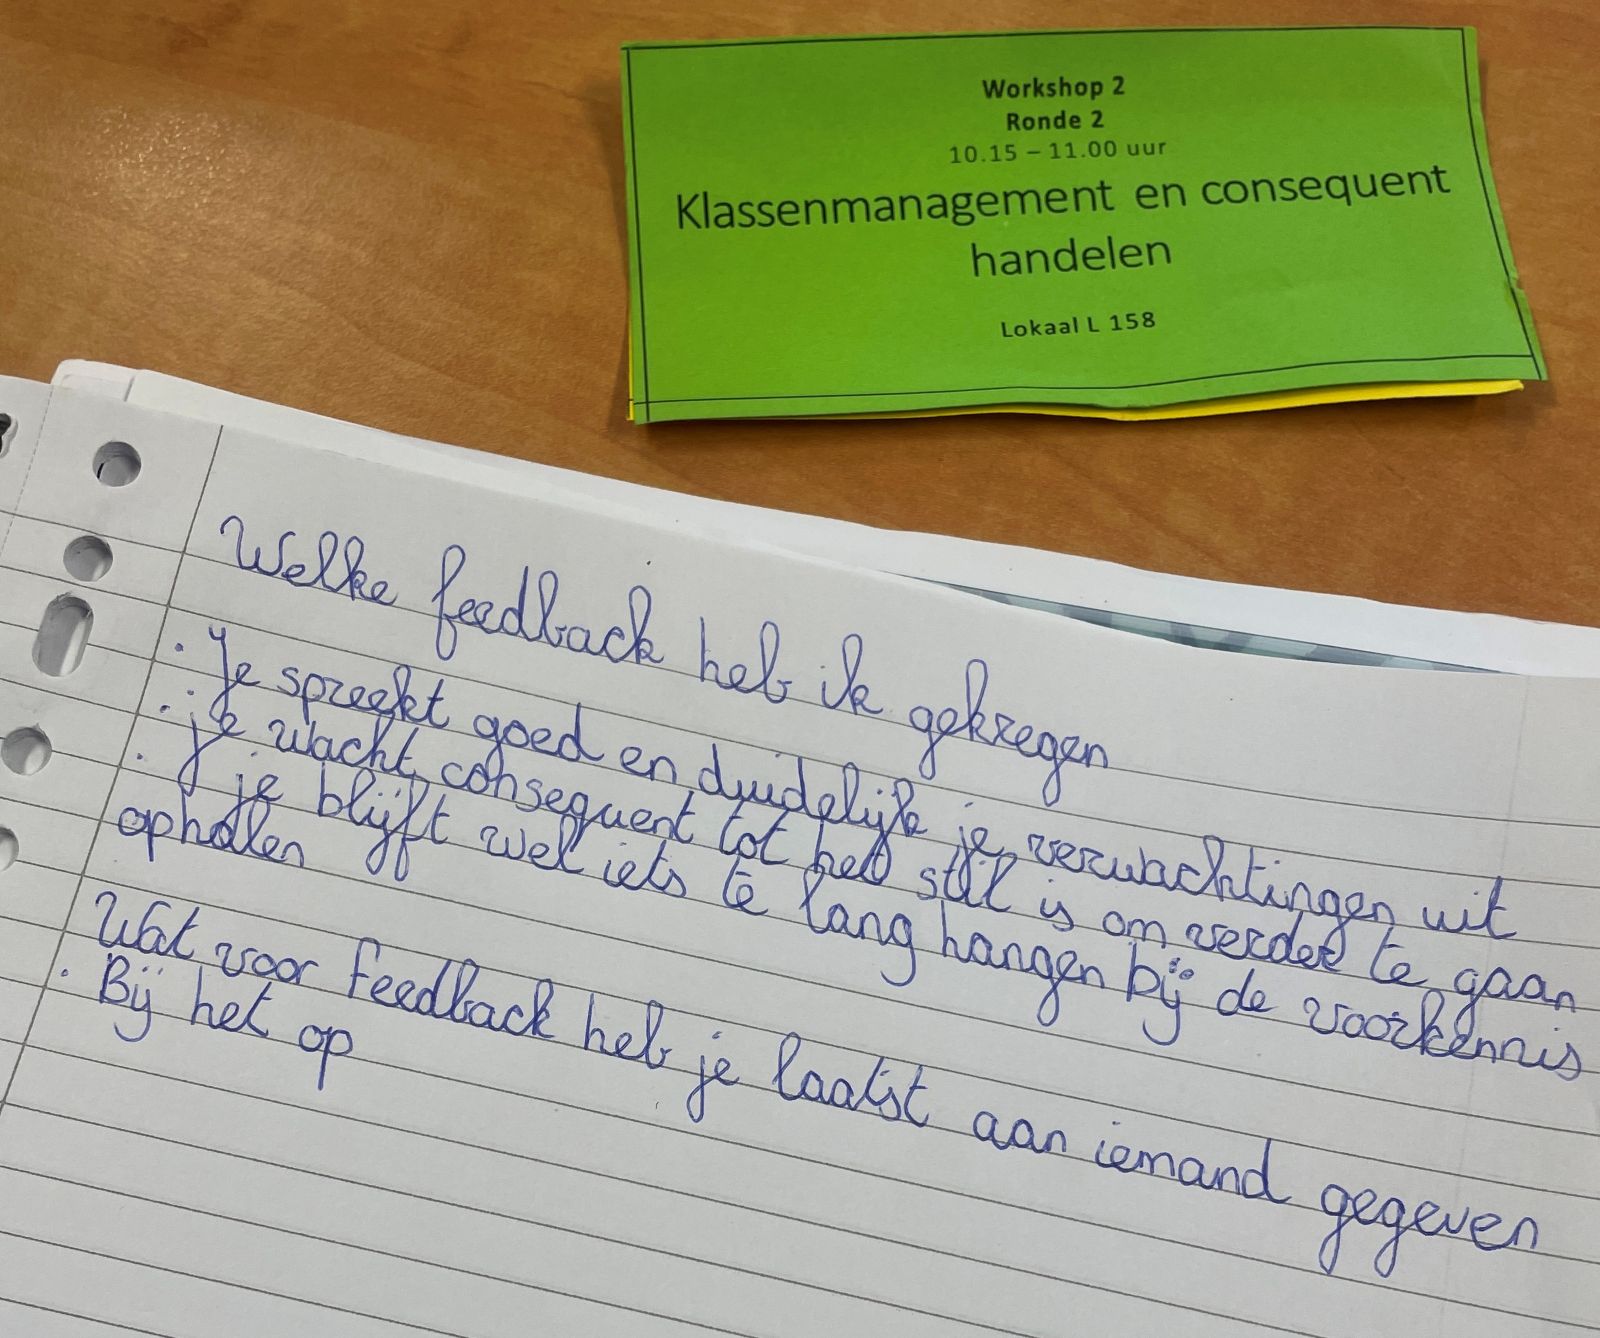 Workshop 2
Ronde 2
10.15 – 11.00 uur
Klassenmanagement en consequent
handelen
Lokaal L 158
Welke feedback heb ik gekregen
· Je spreekt goed en duidelijk je verwachtingen uit
· je wacht consequent tot het stil is om verder te gaan
· je blijft wel iets te lang hangen bij de voorkennis
ophalen
Wat voor feedback heb je laatst aan iemand gegeven
· Bij het op